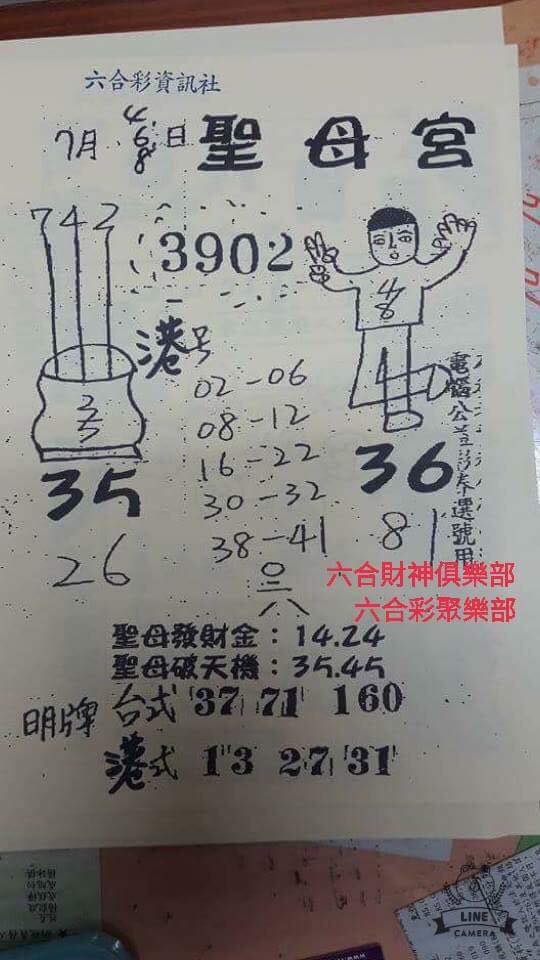 六合彩資訊社
7月 4 6 8 日 聖母宮
742
3902
4
8
港号
2
3
02-06
08-12
16-22
30-32
38-41
35
36
26
81
六合財神俱樂部
六合彩聚樂部
聖母發財金：14.24
聖母破天機：35.45
明牌 台式 37 71 160
港式 13 27 31
LINE
CAMERA